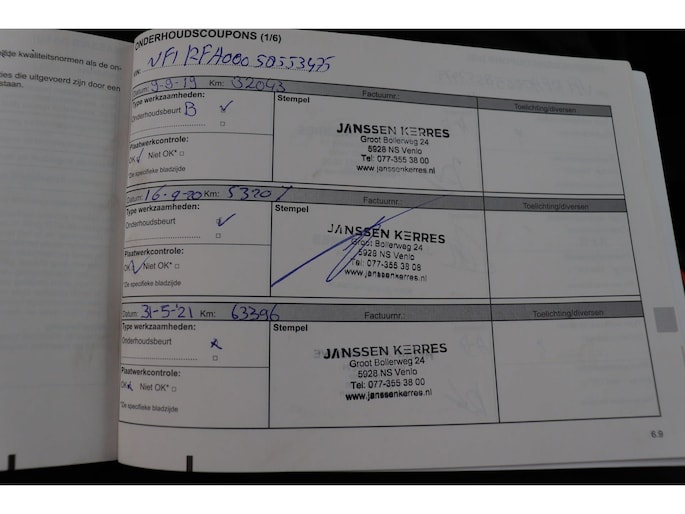 jde kwaliteitsnormen als de on-
ies die uitgevoerd zijn door een
staan.
ONDERHOUDSCOUPONS (1/6)
VF1 RFA000 50553475
Datum: 9-9-19 Km: 32043 Factuurnr.: Toelichting/diversen
Type werkzaamheden: Stempel
Onderhoudsbeurt B ✓
Plaatwerkcontrole:
OK ✓ Niet OK* □
*Zie specifieke bladzijde
JANSSEN KERRES
Groot Bollerweg 24
5928 NS Venlo
Tel: 077-355 38 00
www.janssenkerres.nl
Datum: 16-9-20 Km: 53207 Factuurnr.: Toelichting/diversen
Type werkzaamheden: Stempel
Onderhoudsbeurt ✓
Plaatwerkcontrole:
OK ✓ Niet OK* □
*Zie specifieke bladzijde
JANSSEN KERRES
Groot Bollerweg 24
5928 NS Venlo
Tel: 077-355 38 08
www.janssenkerres.nl
Datum: 31-5-'21 Km: 63396 Factuurnr.: Toelichting/diversen
Type werkzaamheden: Stempel
Onderhoudsbeurt x
Plaatwerkcontrole:
OK x Niet OK* □
*Zie specifieke bladzijde
JANSSEN KERRES
Groot Bollerweg 24
5928 NS Venlo
Tel: 077-355 38 00
www.janssenkerres.nl
6.9